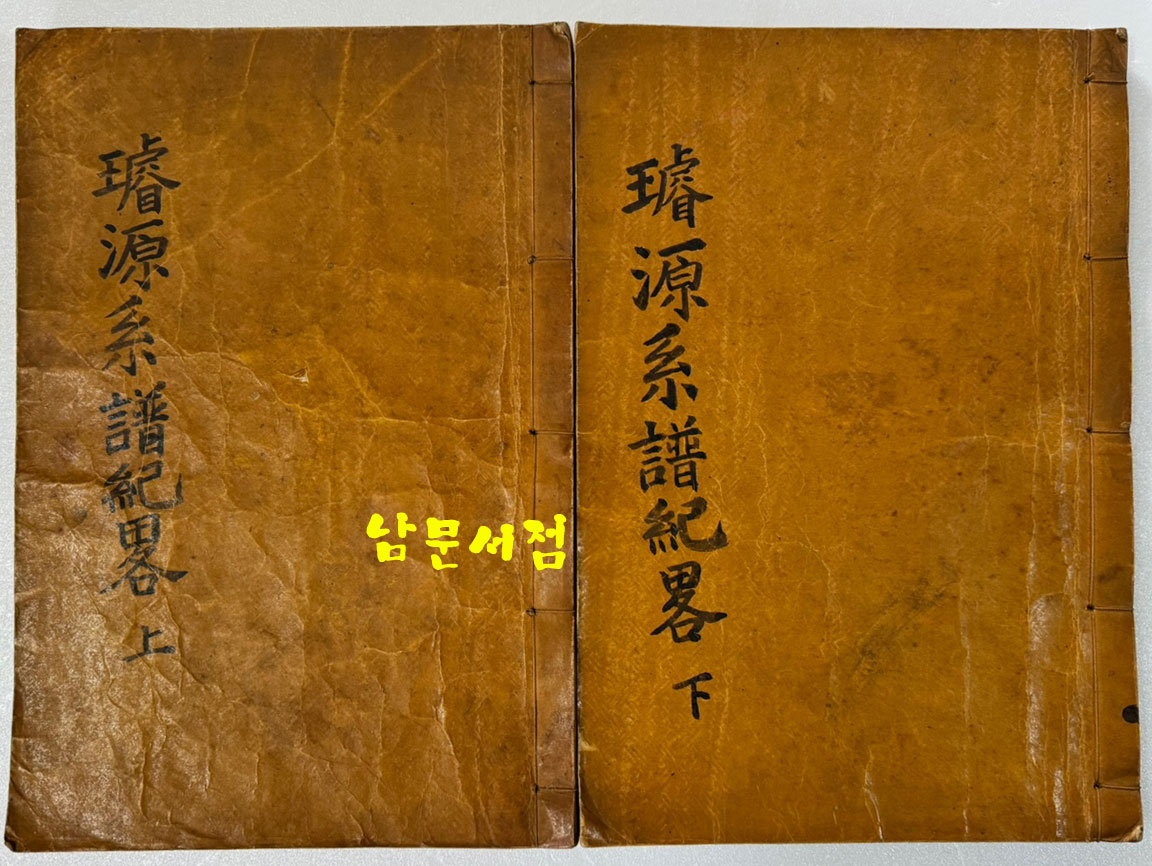 璿源系譜紀畧 上
남문서점
璿源系譜紀畧 下